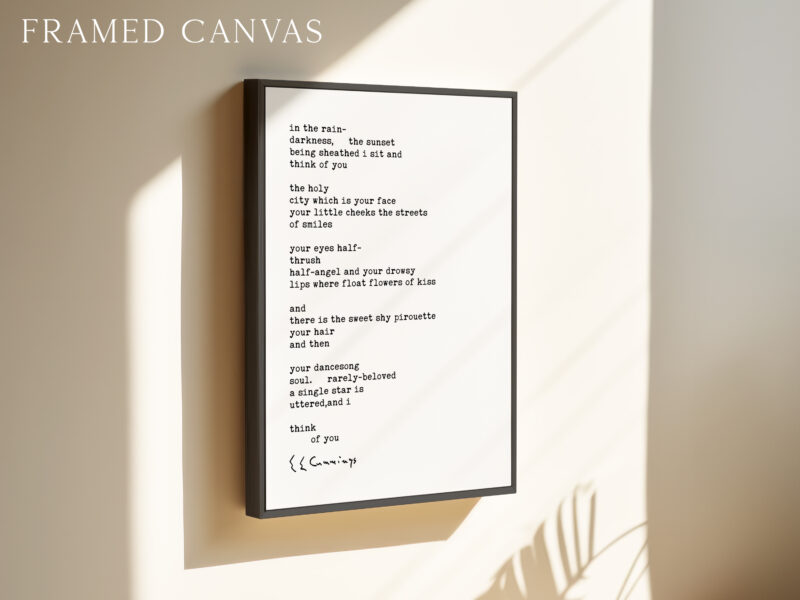 FRAMED CANVAS
in the rain-
darkness,    the sunset
being sheathed i sit and
think of you

the holy
city which is your face
your little cheeks the streets
of smiles

your eyes half-
thrush
half-angel and your drowsy
lips where float flowers of kiss

and
there is the sweet shy pirouette
your hair
and then

your dancesong
soul.    rarely-beloved
a single star is
uttered,and i

think
      of you
EE Cummings